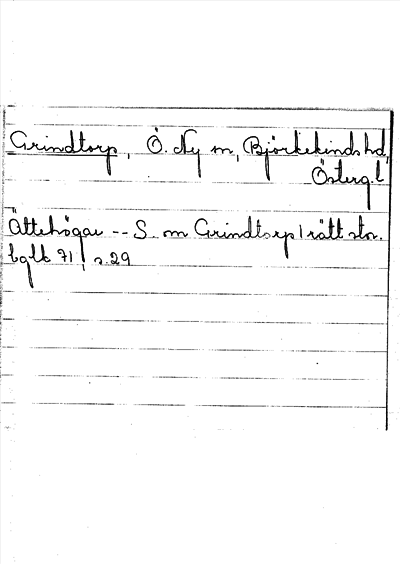 Grindtorp, Ö. Ny sn, Björkekinds hd,
Österg. l
Ättehögar -- S. om Grindtorp / rätt stor.
bglb 71, s. 29